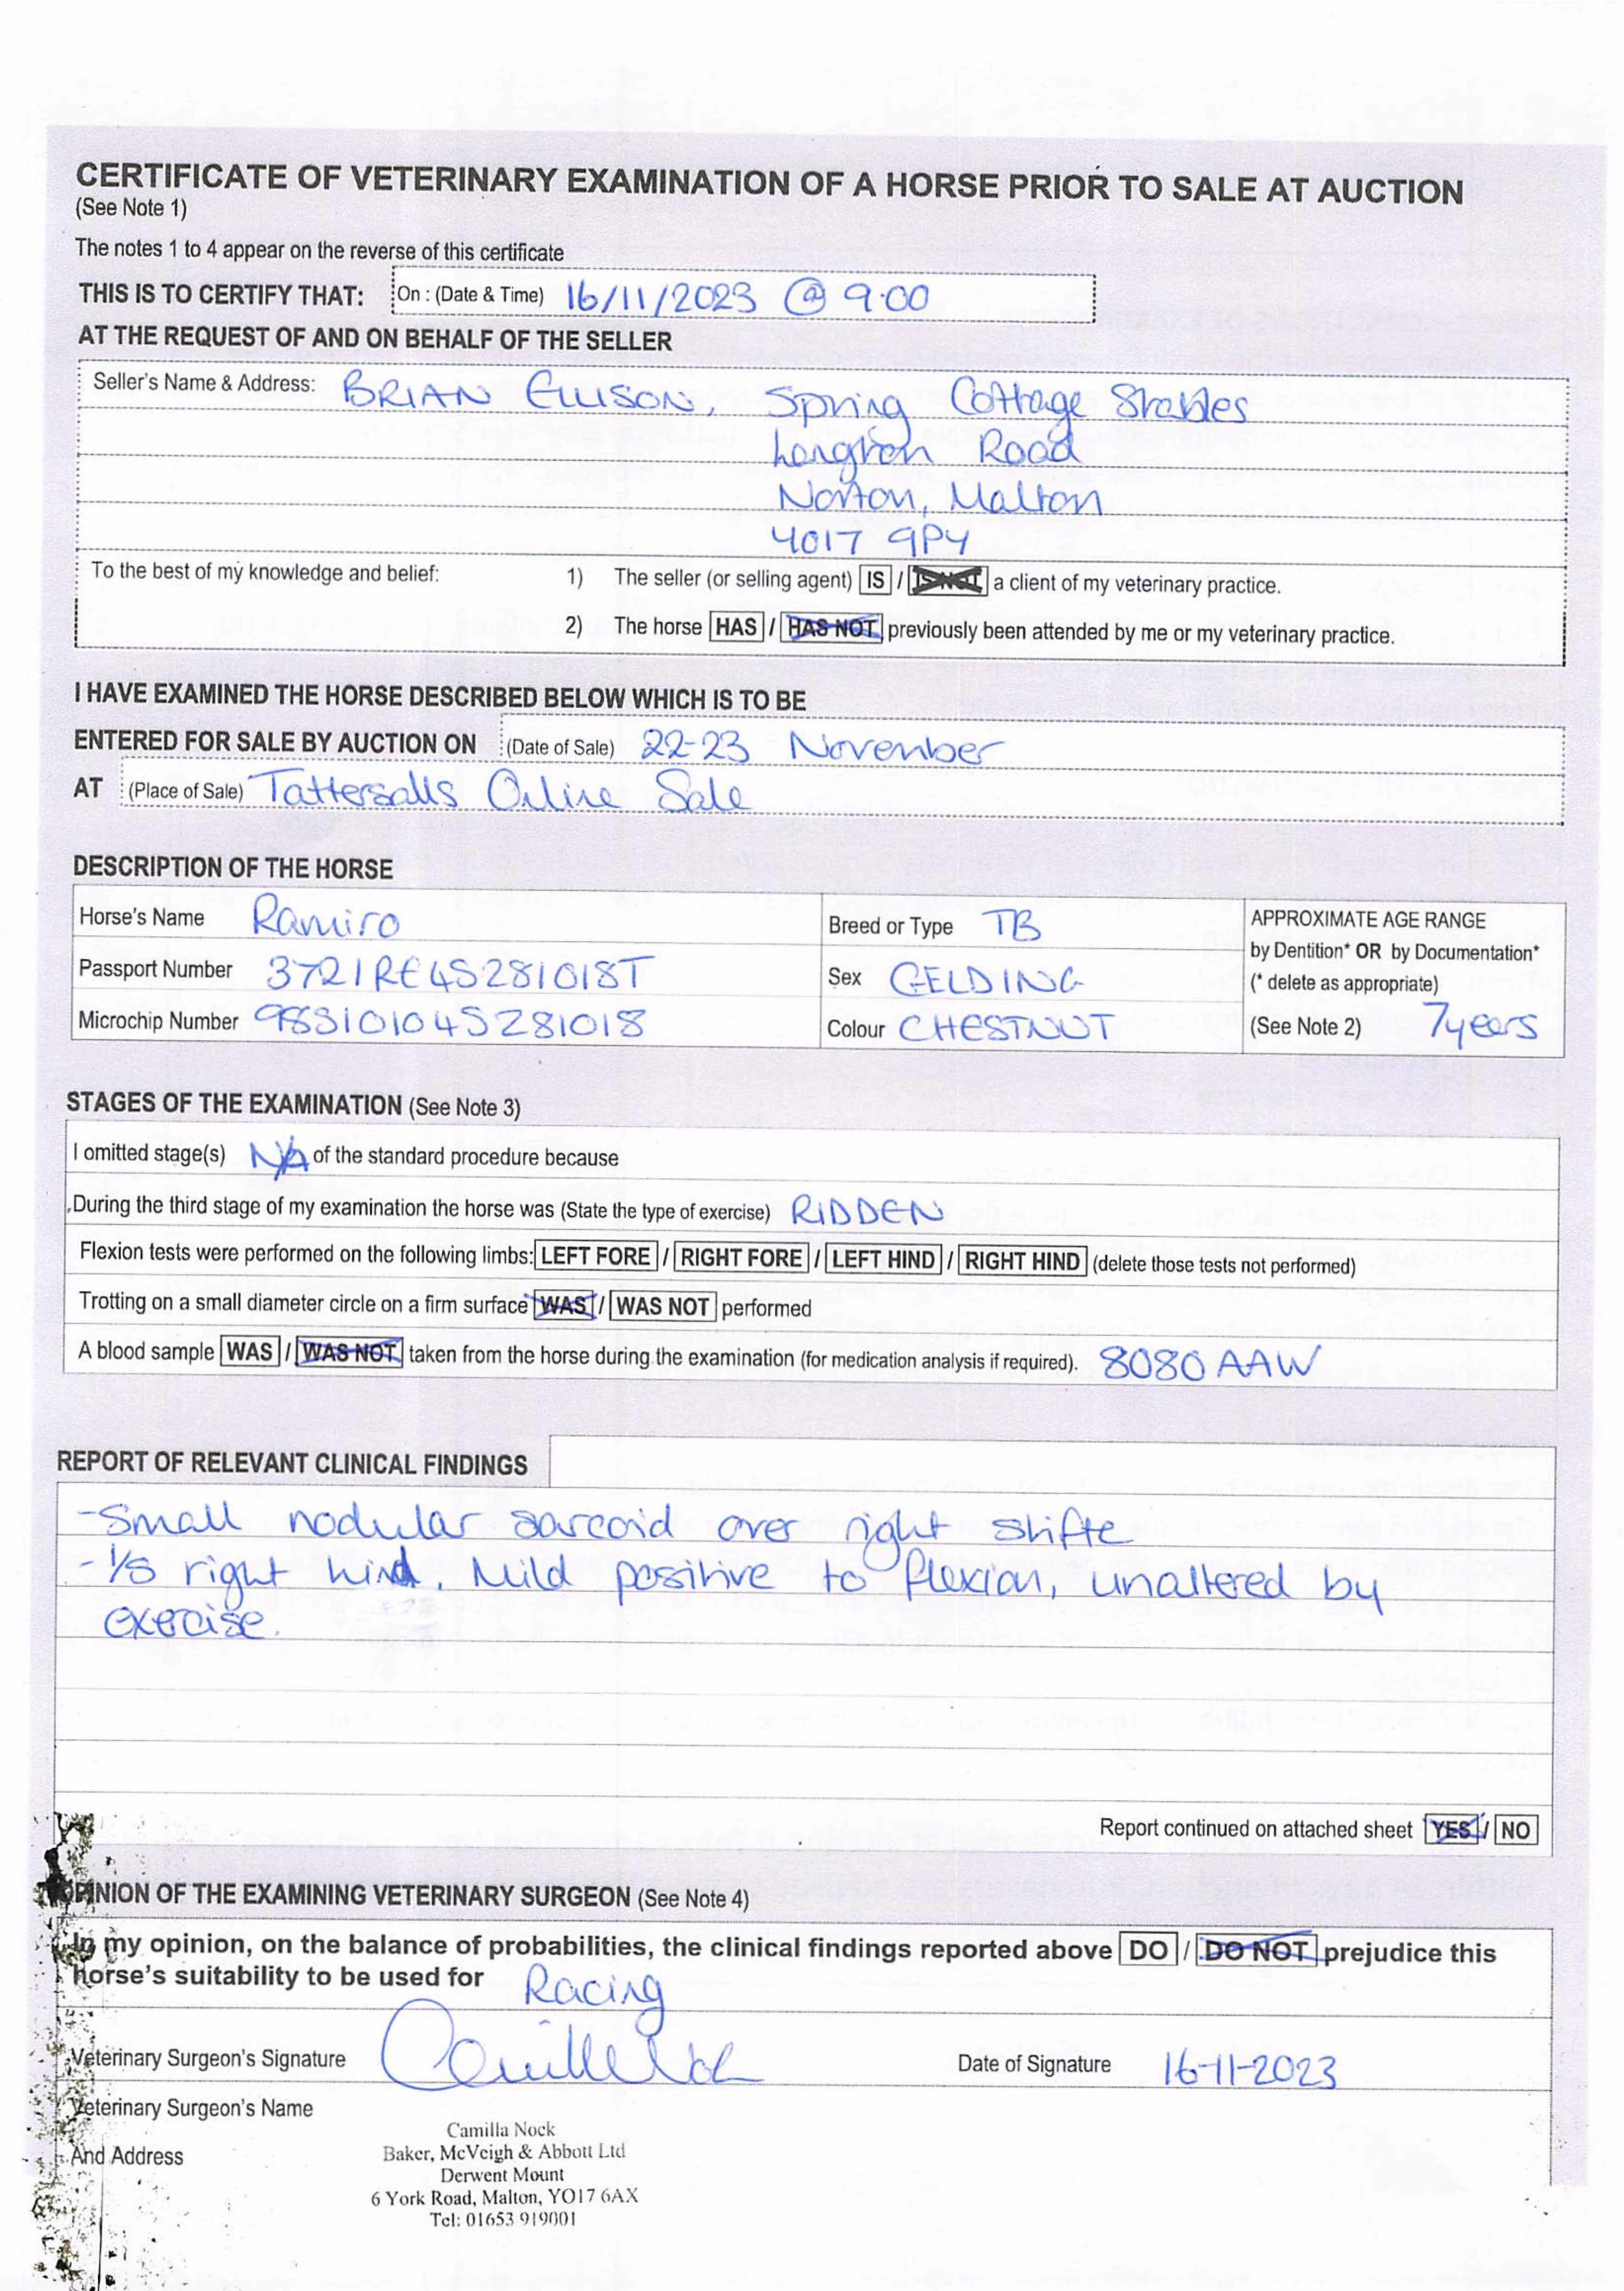 CERTIFICATE OF VETERINARY EXAMINATION OF A HORSE PRIOR TO SALE AT AUCTION
(See Note 1)
The notes 1 to 4 appear on the reverse of this certificate
THIS IS TO CERTIFY THAT: On : (Date & Time) 16/11/2023 @ 9.00
AT THE REQUEST OF AND ON BEHALF OF THE SELLER
Seller's Name & Address: BRIAN ELLISON, Spring Cottage Stables
Langton Road
Norton, Malton
YO17 9PY
To the best of my knowledge and belief: 1) The seller (or selling agent) IS / IS NOT a client of my veterinary practice.
2) The horse HAS / HAS NOT previously been attended by me or my veterinary practice.
I HAVE EXAMINED THE HORSE DESCRIBED BELOW WHICH IS TO BE
ENTERED FOR SALE BY AUCTION ON (Date of Sale) 22-23 November
AT (Place of Sale) Tattersalls Online Sale
DESCRIPTION OF THE HORSE
Horse's Name Ramiro Breed or Type TB APPROXIMATE AGE RANGE
by Dentition* OR by Documentation*
Passport Number 3721RE45281018T Sex GELDING (* delete as appropriate)
Microchip Number 983101045281018 Colour CHESTNUT (See Note 2) 7years
STAGES OF THE EXAMINATION (See Note 3)
I omitted stage(s) N/A of the standard procedure because
During the third stage of my examination the horse was (State the type of exercise) RIDDEN
Flexion tests were performed on the following limbs: LEFT FORE / RIGHT FORE / LEFT HIND / RIGHT HIND (delete those tests not performed)
Trotting on a small diameter circle on a firm surface WAS / WAS NOT performed
A blood sample WAS / WAS NOT taken from the horse during the examination (for medication analysis if required). 8080AAW
REPORT OF RELEVANT CLINICAL FINDINGS
-Small nodular sarcoid over right stifle
- 1/5 right hind. Mild positive to flexion, unaltered by
exercise.
Report continued on attached sheet YES / NO
OPINION OF THE EXAMINING VETERINARY SURGEON (See Note 4)
In my opinion, on the balance of probabilities, the clinical findings reported above DO / DO NOT prejudice this
horse's suitability to be used for Racing
Veterinary Surgeon's Signature Date of Signature 16-11-2023
Veterinary Surgeon's Name
And Address
Camilla Nock
Baker, McVeigh & Abbott Ltd
Derwent Mount
6 York Road, Malton, YO17 6AX
Tel: 01653 919001